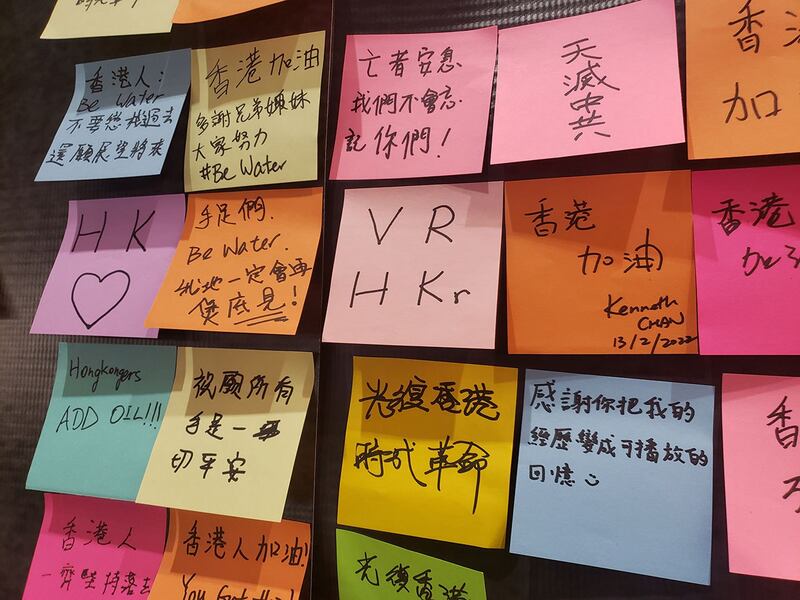 香港人：
Be Water
不要忘
還願展望將來
香港加油
多謝兄弟姊妹
大家努力
#Be Water
亡者安息
我們不會忘
記你們！
天
滅
中
共
香
加
H K
手足們.
Be Water.
一定會再
煲底見！
V R
H Kr
香港
加油
Kenneth
CHAN
13/2/2022
香港
加
Hongkongers
ADD OIL!!!
祝願所有
手足一
切平安
光復香港
時代革命
感謝你把我的
經歷變成可播放的
回憶
香
香港人
一齊堅持落去
香港人加油!
You Got
光復香港